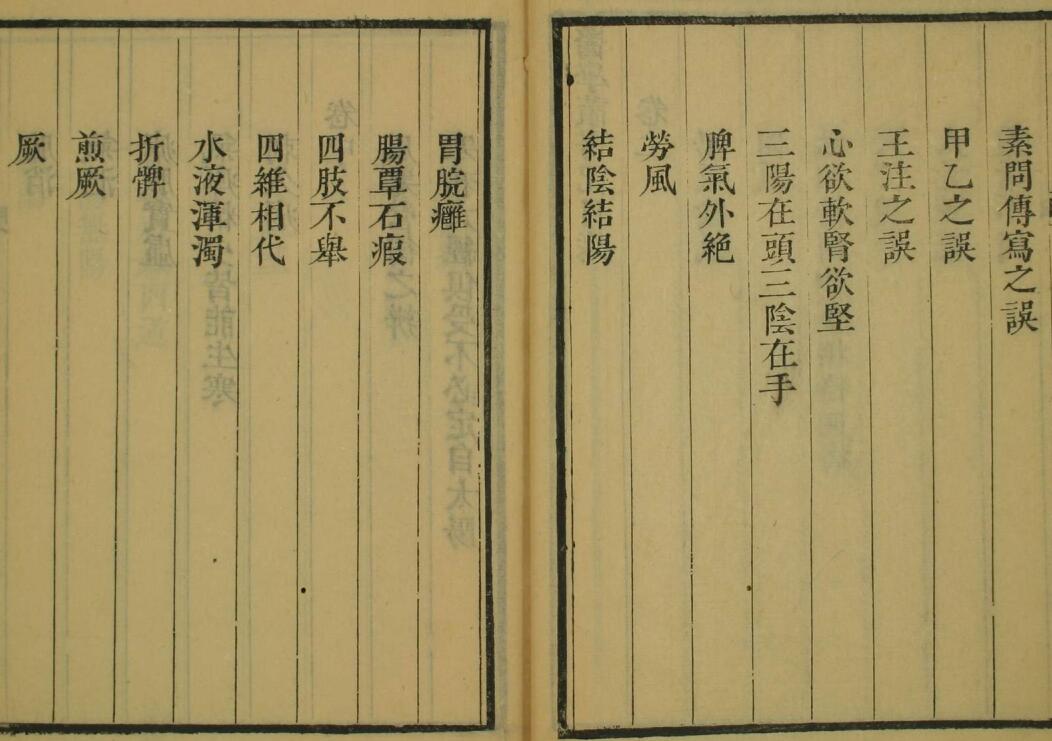 素問傳寫之誤
甲乙之誤
王注之誤
心欲軟腎欲堅
三陽在頭三陰在手
脾氣外絶
勞風
結陰結陽
胃脘癰
腸覃石瘕
四肢不舉
四維相代
水液渾濁
折髀
煎厥
厥